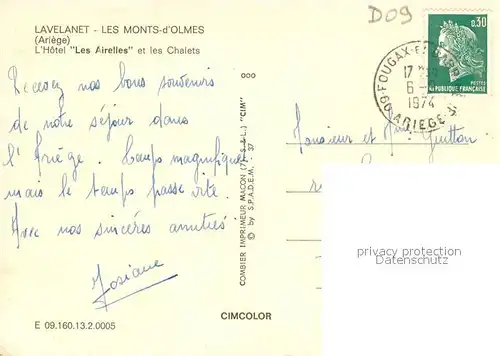 LAVELANET - LES MONTS-d'OLMES
(Ariège)
L'Hôtel "Les Airelles" et les Chalets
D09
0,30
POSTES
RÉPUBLIQUE FRANÇAISE
09-FOUGAX-E
17
6-
1974
ARIEGE
Recevez nos bons souvenirs
de notre séjour dans
l'Ariège. Temps magnifique
mais le temps passe vite.
Avec nos sincères amitiés
Josiane
COMBIER IMPRIMEUR MACON (71 S.&L.) "CIM"
© by S.P.A.D.E.M. - 37
Monsieur et Mme Guitton
privacy protection
Datenschutz
CIMCOLOR
E 09.160.13.2.0005